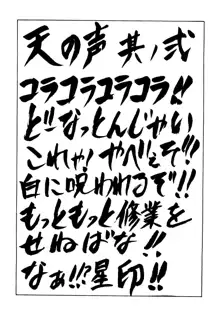 天の声 其ノ弐
コラコラコラコラ!!
ど〜なっとんじゃい
これゃ!やべぇぞ!!
白に呪われるぞ!!
もっともっと修業を
せねばな!!
なぁ!!?星印!!